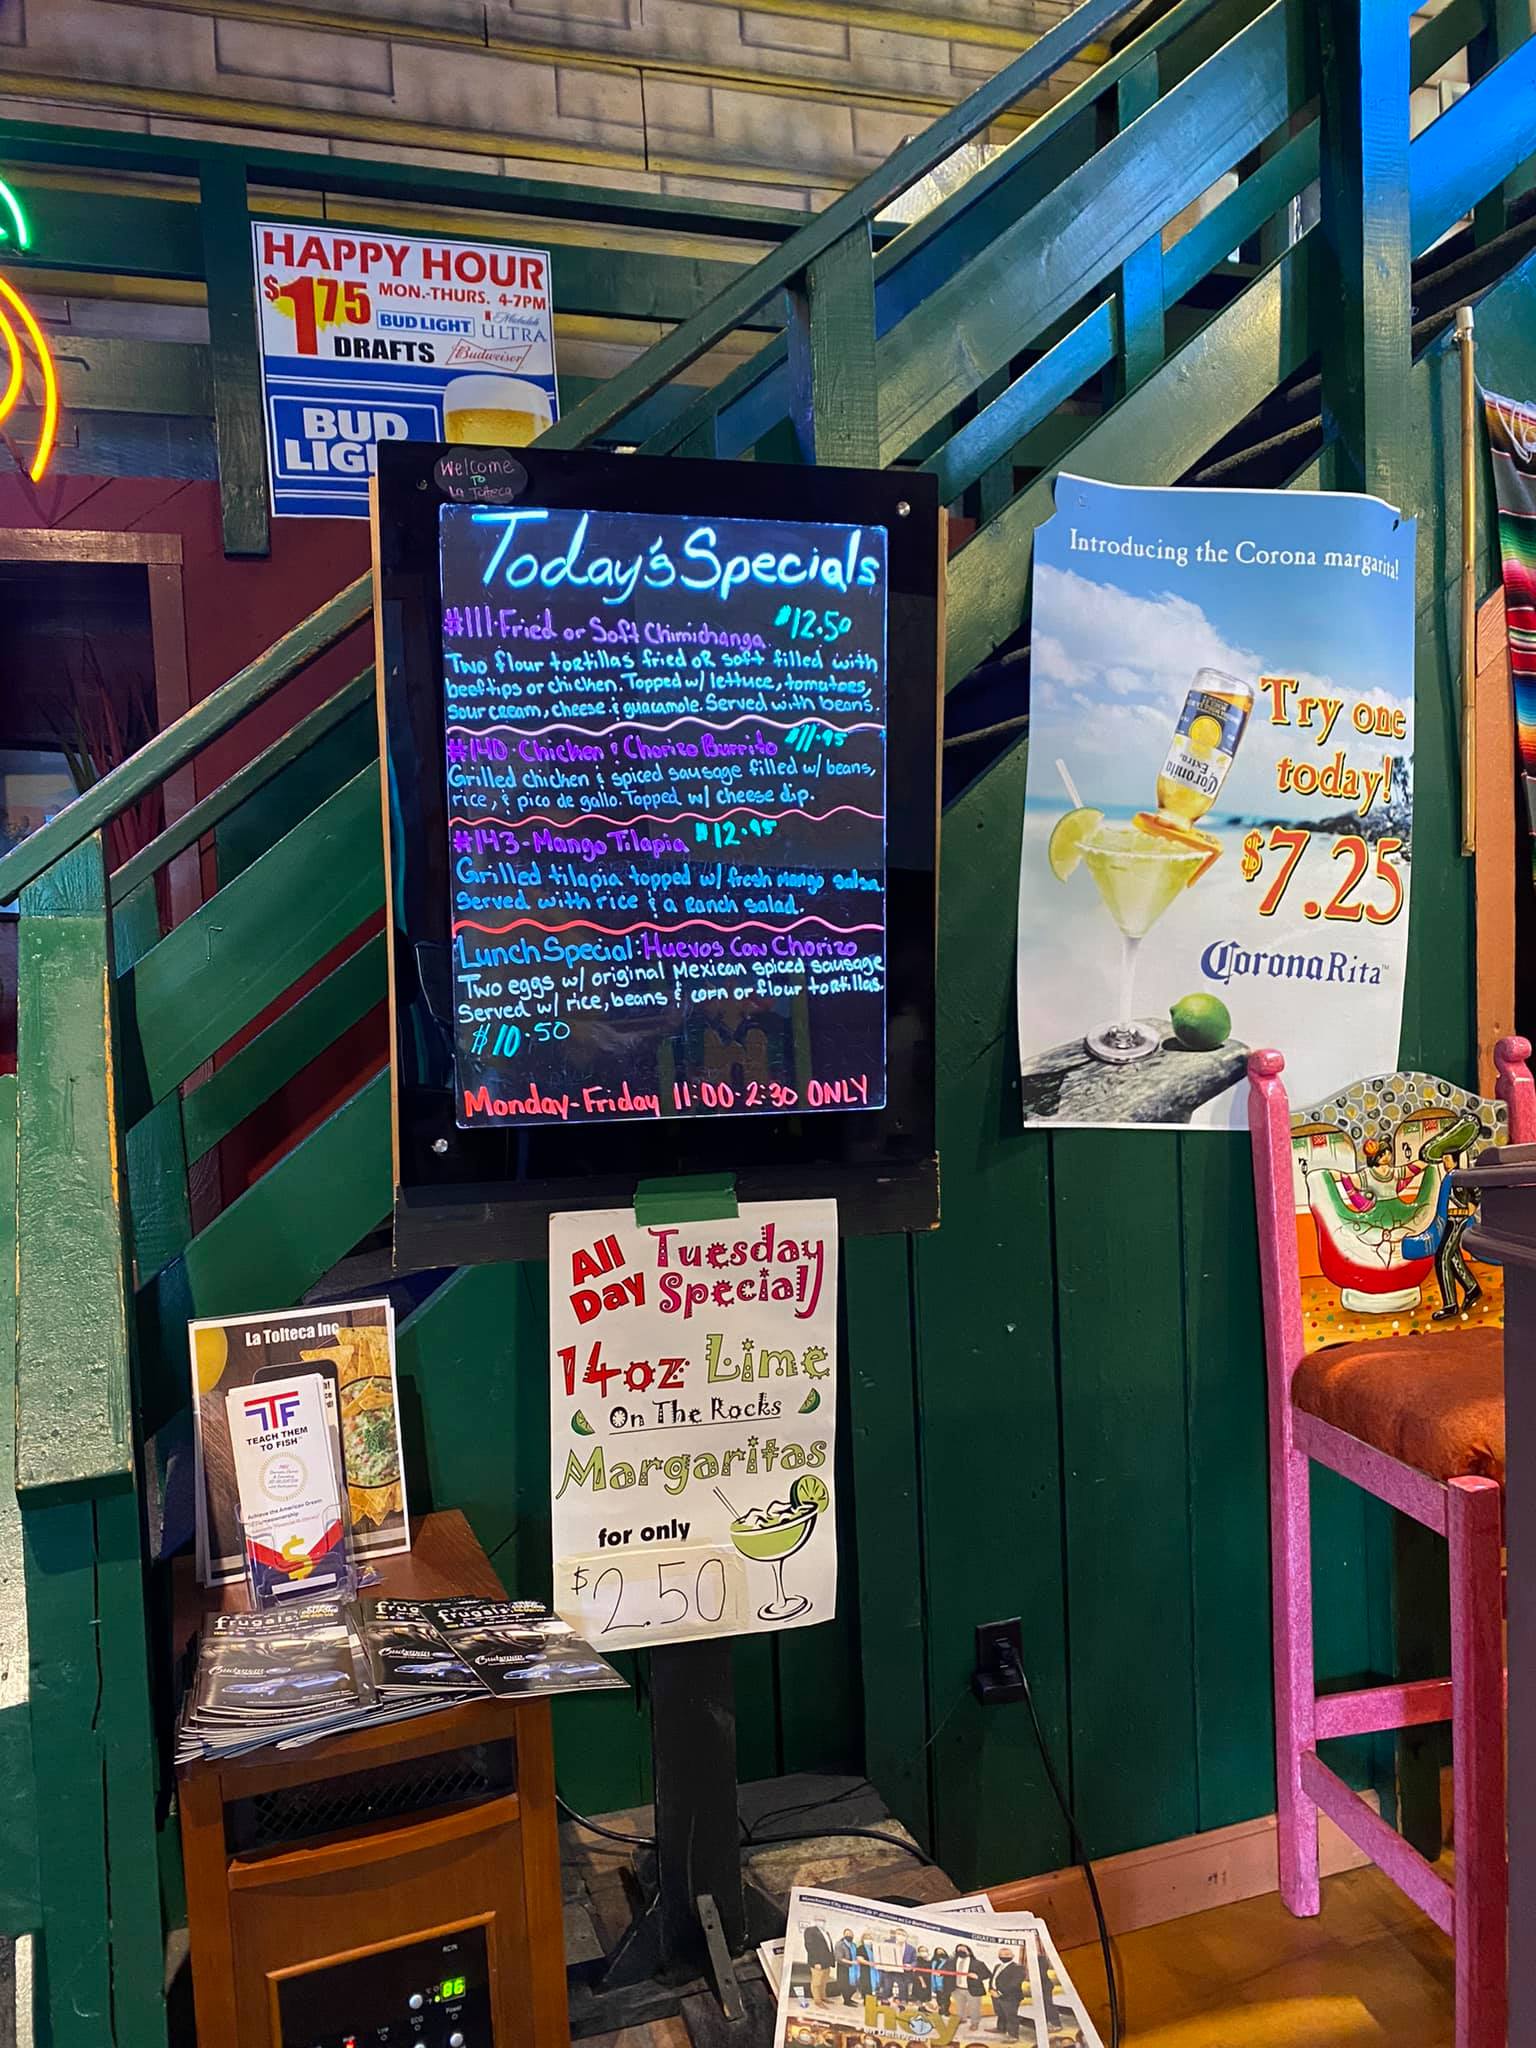 HAPPY HOUR
$1.75 MON.-THURS. 4-7PM
BUD LIGHT Michelob ULTRA
DRAFTS Budweiser
BUD
LIG
Welcome
To
La Tolteca
Today's Specials
#111-Fried or Soft Chimichanga $12.50
Two flour tortillas fried or soft filled with
beeftips or chicken. Topped w/ lettuce, tomatoes,
sour cream, cheese & guacamole. Served with beans.
#140-Chicken & Chorizo Burrito $11.95
Grilled chicken & spiced sausage filled w/ beans,
rice, & pico de gallo. Topped w/ cheese dip.
#143-Mango Tilapia $12.95
Grilled tilapia topped w/ fresh mango salsa.
Served with rice & a Ranch salad.
Lunch Special: Huevos Con Chorizo
Two eggs w/ original Mexican spiced sausage
Served w/ rice, beans & corn or flour tortillas.
$10.50
Monday-Friday 11:00-2:30 ONLY
Introducing the Corona margarita!
Try one
today!
$7.25
CoronaRita™
Corona
Extra
All Day Tuesday Special
14oz Lime
On The Rocks
Margaritas
for only
$2.50
La Tolteca Inc
TTF
TEACH THEM
TO FISH™
Achieve the American Dream
frugals
frugals
frugals
GRATIS FREE
hoy
en Delaware
RCN
86
ECO
Power